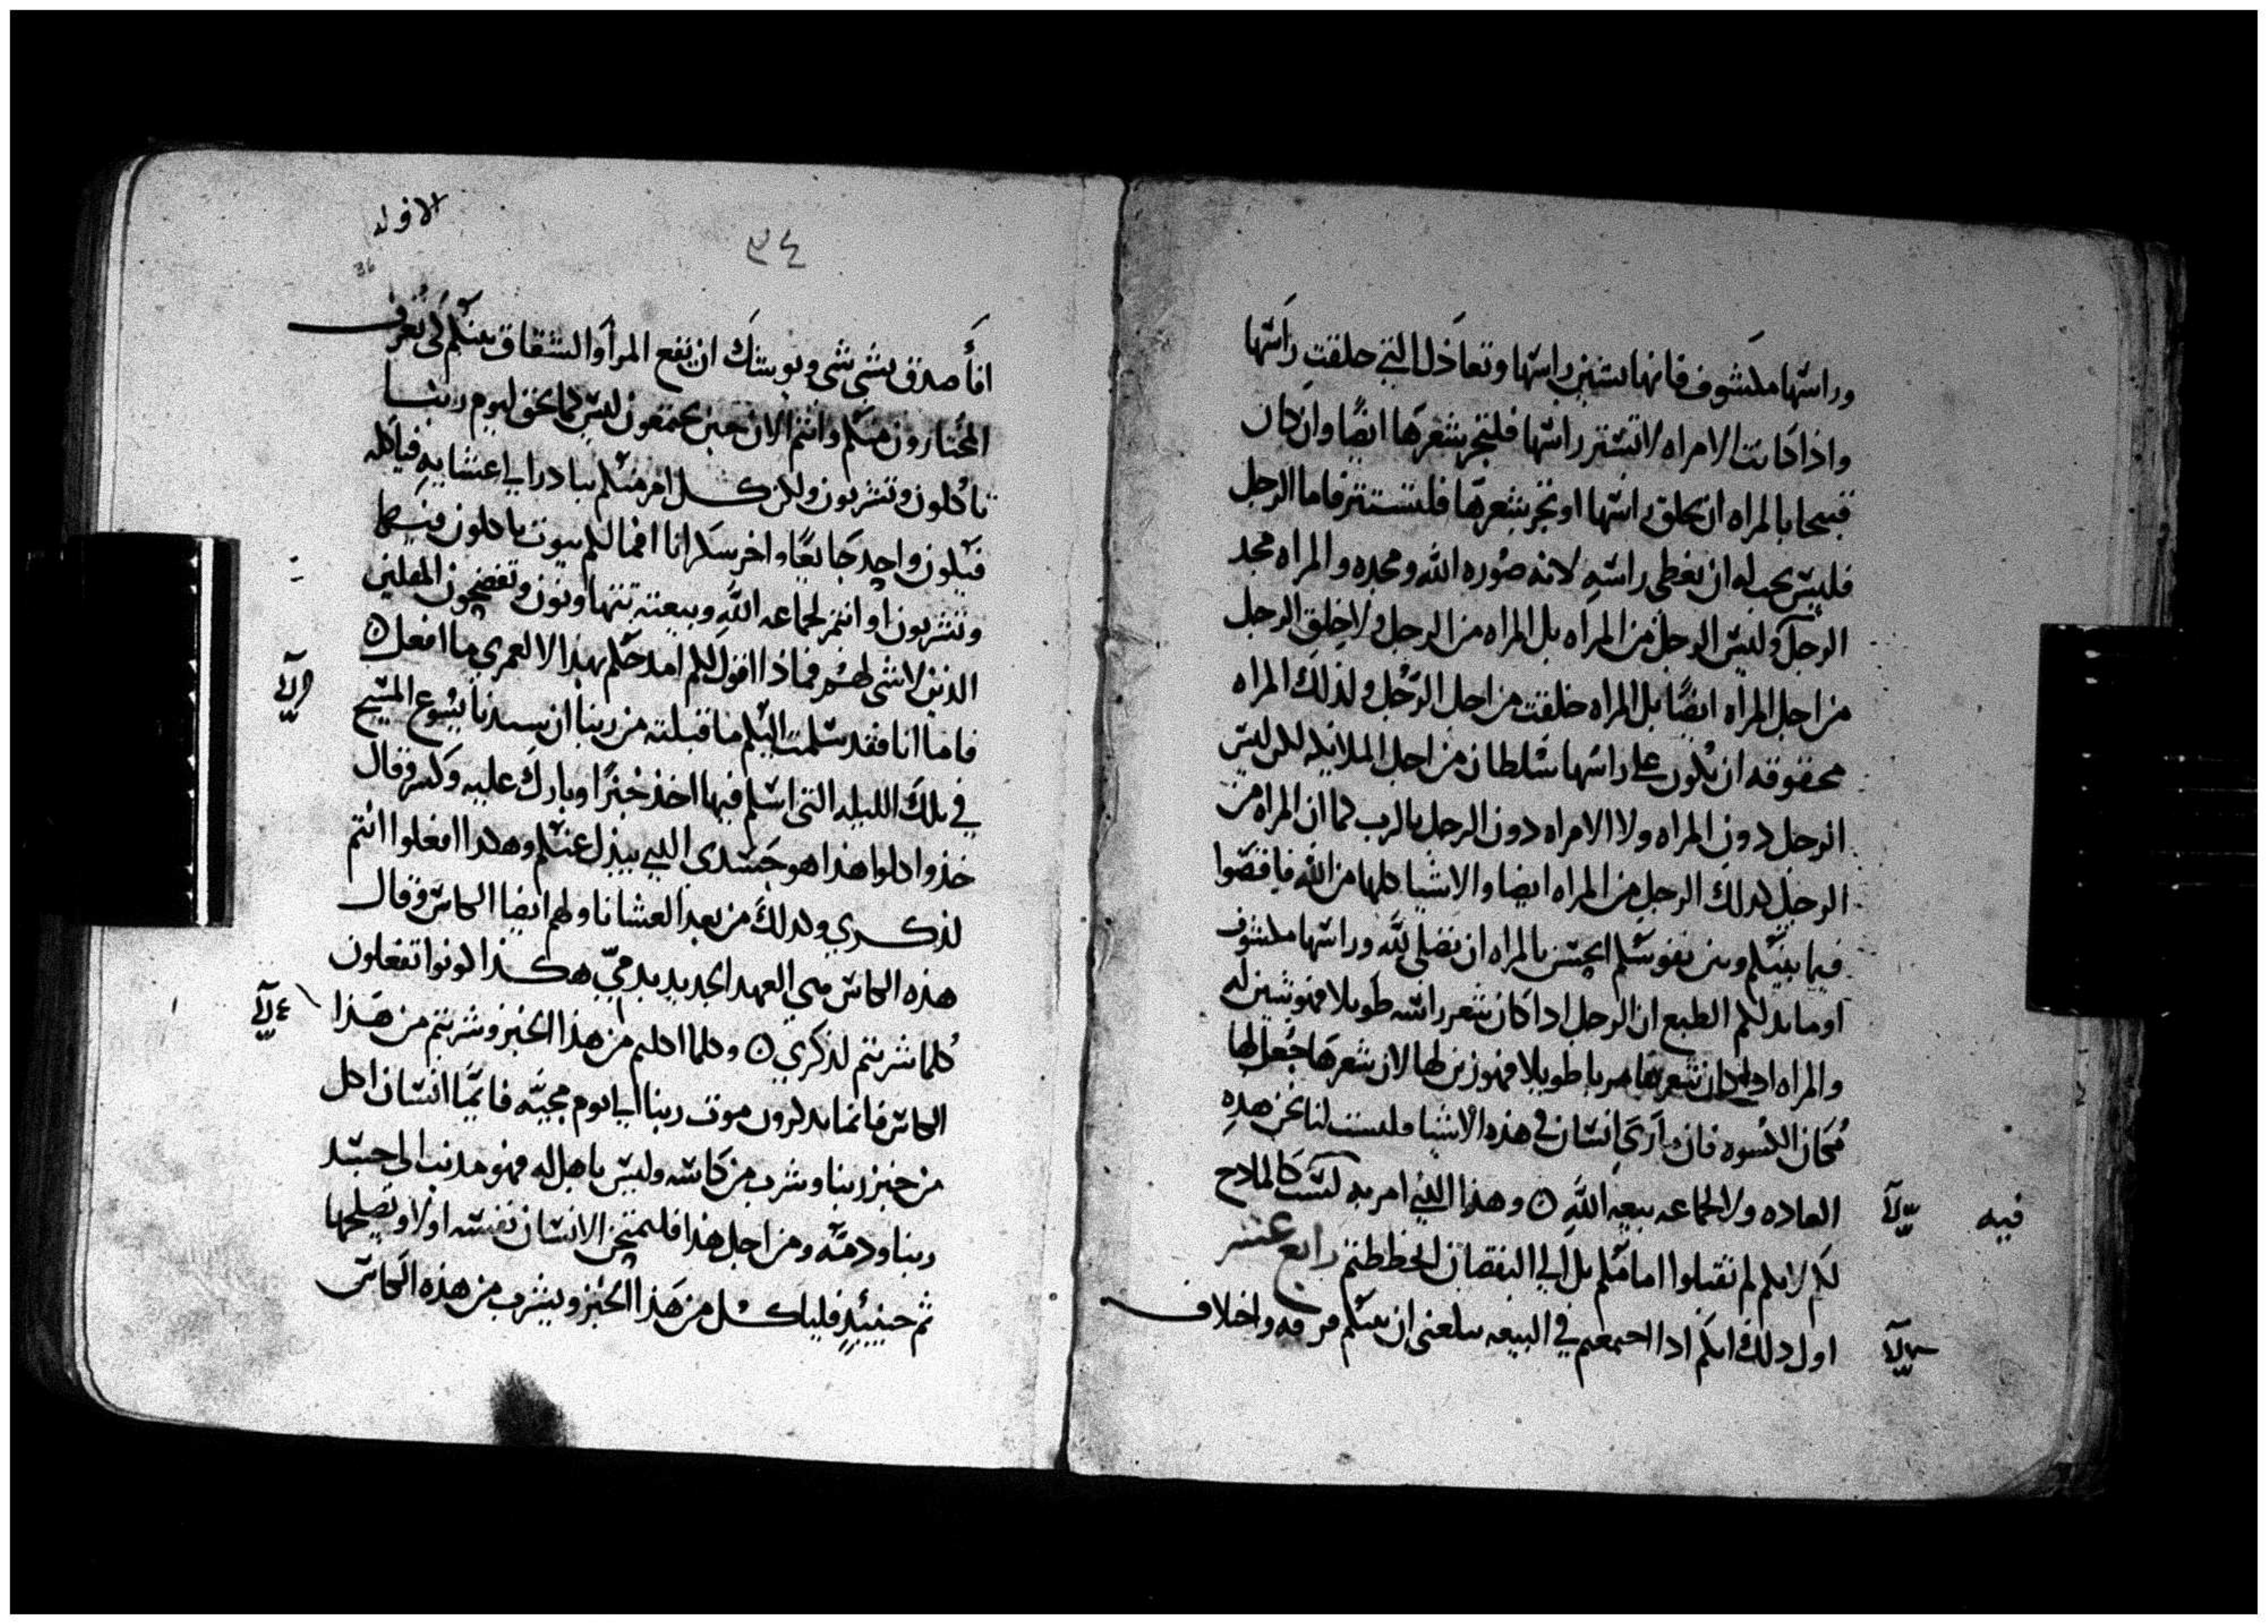 وراسها مكشوف فانها تشين راسها وتعادل التي حلقت راسها
واذا كانت الامراه لا تستتر راسها فلتجز شعرها ايضًا وان كان
قبيحا بالمراه ان يحلق راسها او تجز شعرها فلتستتر فاما الرجل
فليس يجب له ان يغطي راسه لانه صوره الله ومجده والمراه مجد
الرجل وليس الرجل من المراه بل المراه من الرجل ولا خلق الرجل
من اجل المراه ايضًا بل المراه خلقت من اجل الرجل ولذلك المراه
محقوقه ان يكون على راسها سلطان من اجل الملايكه لكن ليس
الرجل دون المراه ولا الامراه دون الرجل بالرب كما ان المراه من
الرجل كدلك الرجل من المراه ايضا والاشيا كلها من الله فاقضوا
فيما بينكم وبين نفوسكم ايحسن بالمراه ان تصلي لله وراسها مكشوف
اوما يدلكم الطبع ان الرجل ادا كان شعر راسه طويلا فهو شين له
والمراه ادا كان شعرها مربا طويلا فهو زين لها لان شعرها جعل لها
مكان الكسوه فان مارى انسان في هذه الاشيا فليست لنا نحن هذه
العاده ولا لجماعه بيعه الله ه وهذا الذي امر به لست كالمادح
فيه
لكم لانكم لم تقبلوا امامكم بل الي النقصان انحططتم رابع عشر
اول دلك انكم ادا اجتمعتم في البيعه يبلغني ان بينكم فرقه واختلاف
الاوله
٣٤
36
افأصدق بشي شي ويوشك ان يقع المرا والشقاق بينكم لكي يعرف
المختارون منكم وانتم الان حين تجتمعون ليس كما يحق ليوم ربنا
تاكلون وتشربون ولكن كل امر منكم يبادر الي عشايه فياكله
فيكون واحد جايعًا واخر سكرانا افما لكم بيوت تاكلون فيها
وتشربون او انتم لجماعه الله وبيعته تتهاونون وتفضحون المقلين
الذين لا شي لهم فماذا اقول لكم امدحكم بهذا لا لعمري ما افعل ه
فاما انا فقد سلمت اليكم ما قبلته من ربنا ان سيدنا يسوع المسيح
في تلك الليله التي اسلم فيها اخذ خبزًا وبارك عليه وكسر وقال
خذوا كلوا هذا هو جسدي الذي يبذل عنكم وهكدا افعلوا انتم
لذكري وكدلك من بعد العشا ناولهم ايضا الكاس وقال
هذه الكاس هي العهد الجديد بدمي هكذا كونوا تفعلون
كلما شربتم لذكري ه وكلما اكلتم من هذا الخبز وشربتم من هذا
الكاس فانما تدكرون موت ربنا الي يوم مجيّه فايما انسان اكل
من خبز ربنا وشرب من كاسه وليس باهل له فهو مدنب الي جسد
ربنا ودمه ومن اجل هذا فليمتحن الانسان نفسه اولا ويصلحها
ثم حينيدٍ فلياكل من هذا الخبز ويشرب من هذه الكاس